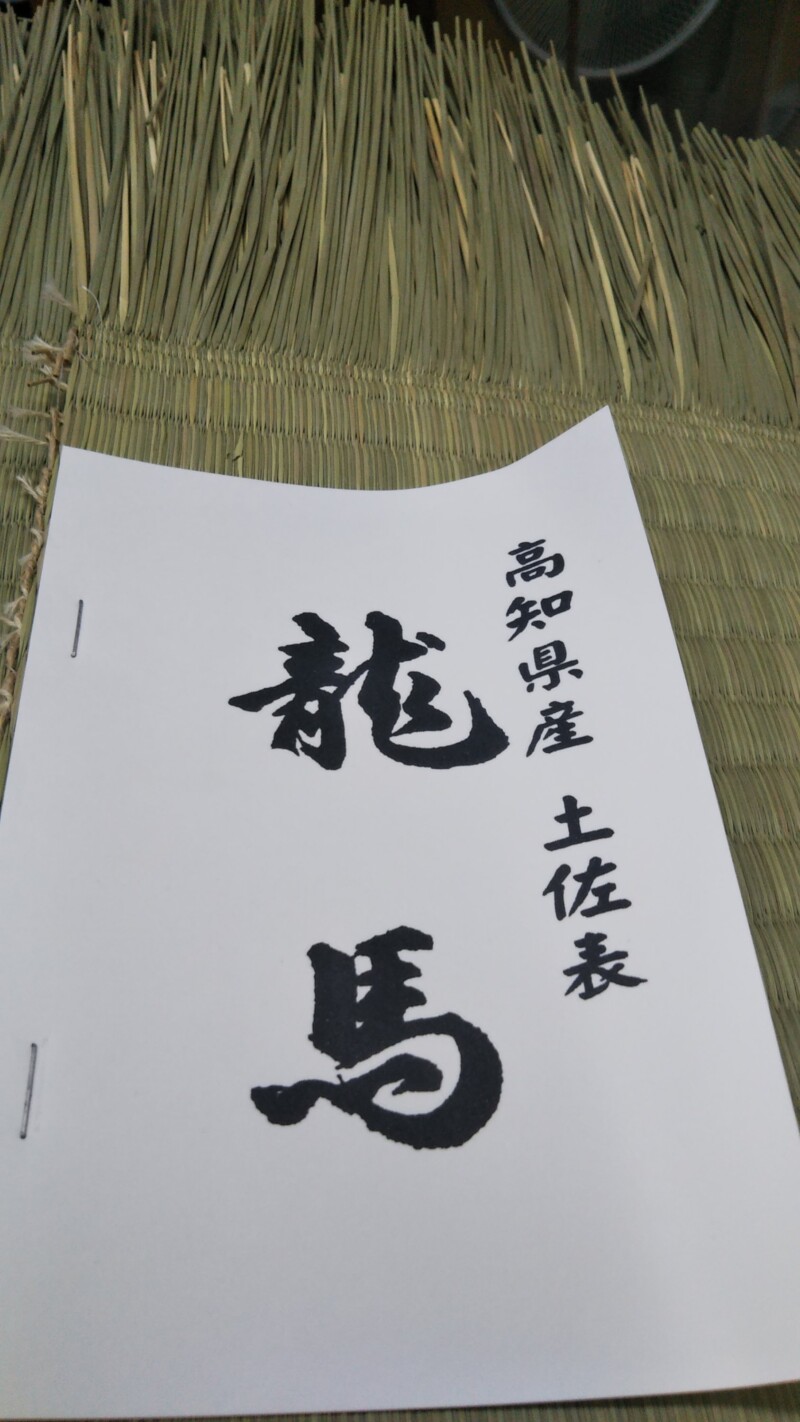 高知県産 土佐表
龍馬